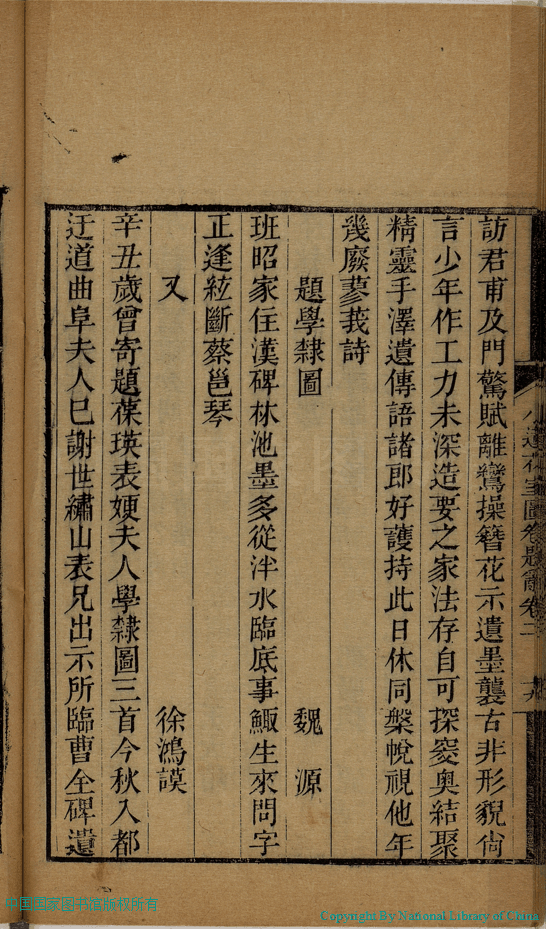 訪君甫及門驚賦離鸞操簪花示遺墨襲古非形貌尙
言少年作工力未深造要之家法存自可探窔奧結聚
精靈手澤遺傳語諸郎好護持此日休同槃帨視他年
幾廢蓼莪詩
題學隸圖 魏源
班昭家住漢碑林池墨多從泮水臨底事鯫生來問字
正逢絃斷蔡邕琴
又 徐鴻謨
辛丑歲曾寄題葆瑛表嫂夫人學隸圖三首今秋入都
迂道曲阜夫人已謝世繡山表兄出示所臨曹全碑遺
卷二
中国国家图书馆版权所有
Copyright By National Library of China